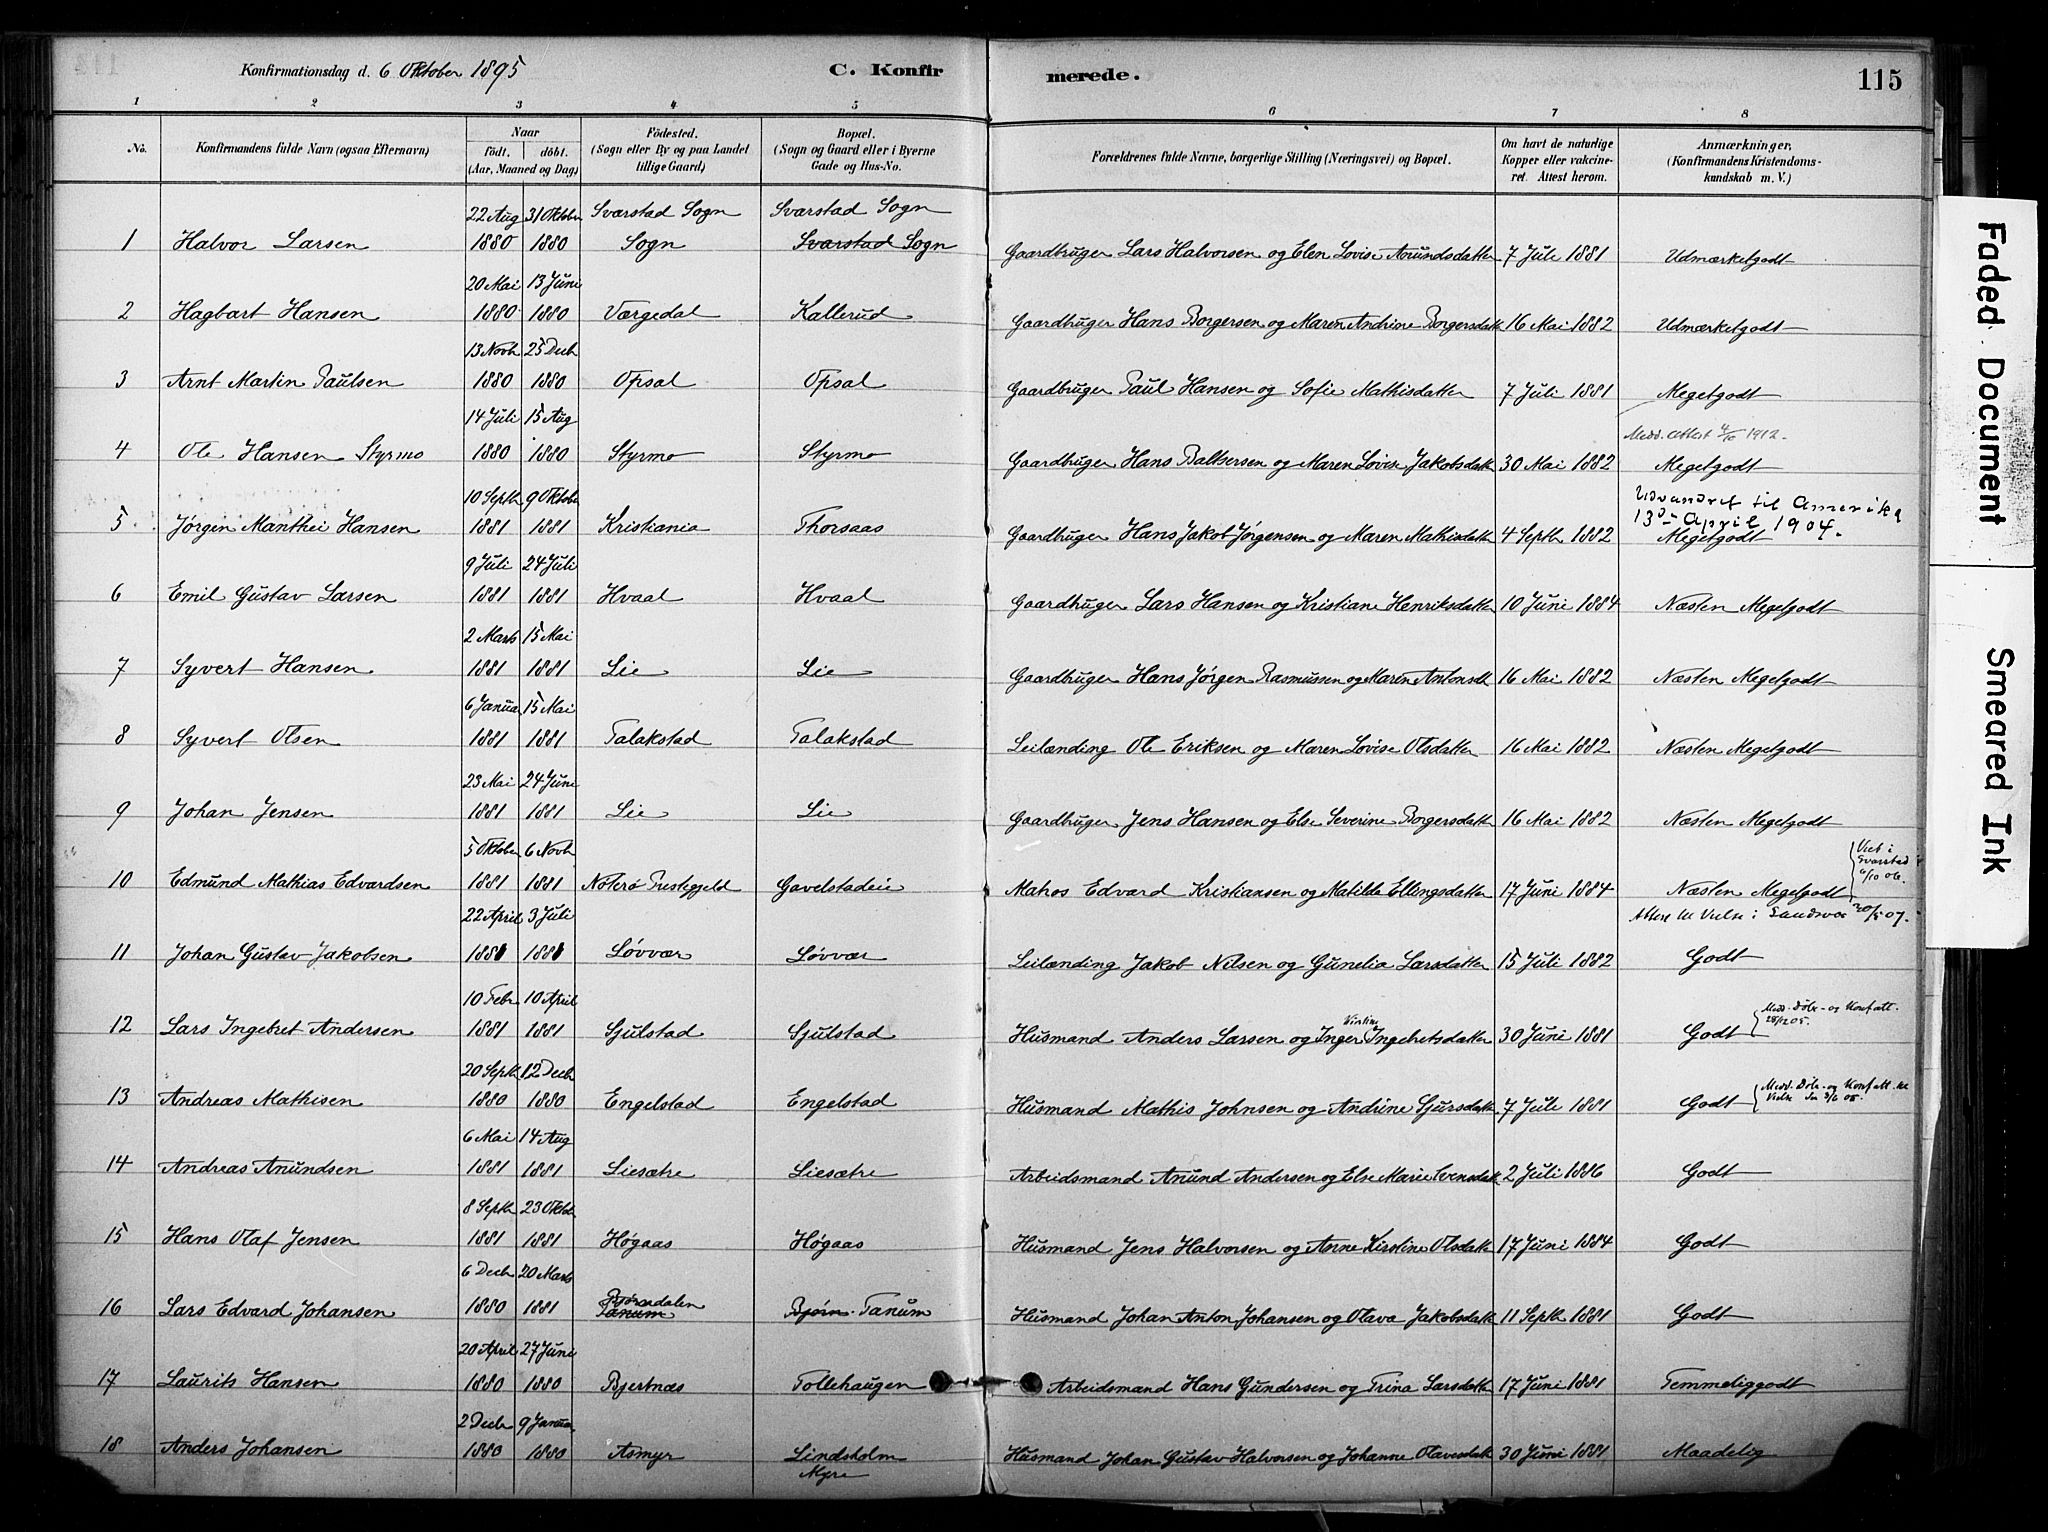 Konfirmationsdag d. 6 Oktober 1895 C. Konfir merede. 115
1 2 3 4 5 6 7 8
No. Konfirmandens fulde Navn (ogsaa Efternavn) Naar født, døbt. (Aar, Maaned og Dag) Fødested. (Sogn eller By og paa Landet tillige Gaard) Bopæl. (Sogn og Gaard eller i Byerne Gade og Hus-No. Forældrenes fulde Navne, borgerlige Stilling (Næringsvei) og Bopæl. Om havt de naturlige Kopper eller vakcineret. Attest herom. Anmærkninger, (Konfirmandens Kristendomskundskab m. V.)
22 Aug 31 Oktober Svarstad Sogn Svarstad Sogn
1 Halvor Larsen 1880 1880 Sogn Svarstad Sogn Gaardbruger Lars Halvorsen og Elen Lovise Anundsdatter 7 Juli 1881 Udmærketgodt
20 Mai 13 Juni
2 Hagbart Hansen 1880 1880 Værgedal Kallerud Gaardbruger Hans Borgersen og Maren Andrine Borgersdatt 16 Mai 1882 Udmærketgodt
13 Novb 25 Decb
3 Arnt Martin Paulsen 1880 1880 Opsal Opsal Gaardbruger Paul Hansen og Sofie Mathisdatter 7 Juli 1881 Megetgodt
14 Juli 15 Aug Medd. Attest 4/10 1912.
4 Ole Hansen Styrmo 1880 1880 Styrmo Styrmo Gaardbruger Hans Baltsersen og Maren Lovise Jakobsdatt 30 Mai 1882 Megetgodt
10 Septb 9 Oktober Udvandret til Amerika 13de April 1904.
5 Jørgen Manthei Hansen 1881 1881 Kristiania Thorsaas Gaardbruger Hans Jakob Jørgensen og Maren Mathisdatt 4 Septb 1882 Megetgodt
9 Juli 24 Juli
6 Emil Gustav Larsen 1881 1881 Hvaal Hvaal Gaardbruger Lars Hansen og Kristiane Henriksdatter 10 Juni 1884 Næsten Megetgodt
2 Marts 15 Mai
7 Syvert Hansen 1881 1881 Lie Lie Gaardbruger Hans Jørgen Rasmussen og Maren Antonsdt 16 Mai 1882 Næsten Megetgodt
6 Janua 15 Mai
8 Syvert Olsen 1881 1881 Falakstad Falakstad Leilænding Ole Eriksen og Maren Lovise Olsdatter 16 Mai 1882 Næsten Megetgodt
23 Mai 24 Juni
9 Johan Jensen 1881 1881 Lie Lie Gaardbruger Jens Hansen og Else Severine Borgersdatter 16 Mai 1882 Næsten Megetgodt
5 Oktober 6 Novb Viet i Svarstad
10 Edmund Mathias Edvardsen 1881 1881 Nøterø Prestegjeld Gavelstadeie Matros Edvard Kristiansen og Matilde Ellingsdatter 17 Juni 1884 Næsten Megetgodt
22 April 3 Juli Attest til Vielse i
11 Johan Gustav Jakobsen 1881 1881 Løvvær Løvvær Leilænding Jakob Nilsen og Gunelia Larsdatter 15 Juli 1882 Godt
10 Febr 10 April Medd. Døbe- og Konf att.
12 Lars Ingebret Andersen 1881 1881 Gjulstad Gjulstad Husmand Anders Larsen og Inger Kirstine Ingebretsdatter 30 Juni 1881 Godt
20 Septb 12 Decb Medd. Døbe- og Konf att.
13 Andreas Mathisen 1880 1880 Engelstad Engelstad Husmand Mathis Johnsen og Andrine Sjursdatt 7 Juli 1881 Godt
6 Mai 14 Aug
14 Andreas Anundsen 1881 1881 Liesætre Liesætre Arbeidsmand Anund Andersen og Else Marie Svensdatt 2 Juli 1886 Godt
8 Septb 23 Oktbr
15 Hans Olaf Jensen 1881 1881 Høgaas Høgaas Husmand Jens Halvorsen og Anne Kirstine Olsdatt 17 Juni 1884 Godt
6 Decb 20 Marts Bjørndalen
16 Lars Edvard Johansen 1880 1881 Tanum Bjørn Tanum Husmand Johan Anton Johansen og Olava Jakobsdatt 11 Septb 1881 Godt
20 April 27 Juni
17 Laurits Hansen 1880 1880 Bjertnæs Tollehaugen Arbeidsmand Hans Gundersen og Trina Larsdatter 17 Juni 1881 Temmeliggodt
2 Decb 9 Januar
18 Anders Johansen 1880 1880 Asmyr Lindsholm Myre Husmand Johan Gustav Halvorsen og Johanne Olavesdatt 30 Juni 1881 Maadelig
Faded Document
Smeared Ink